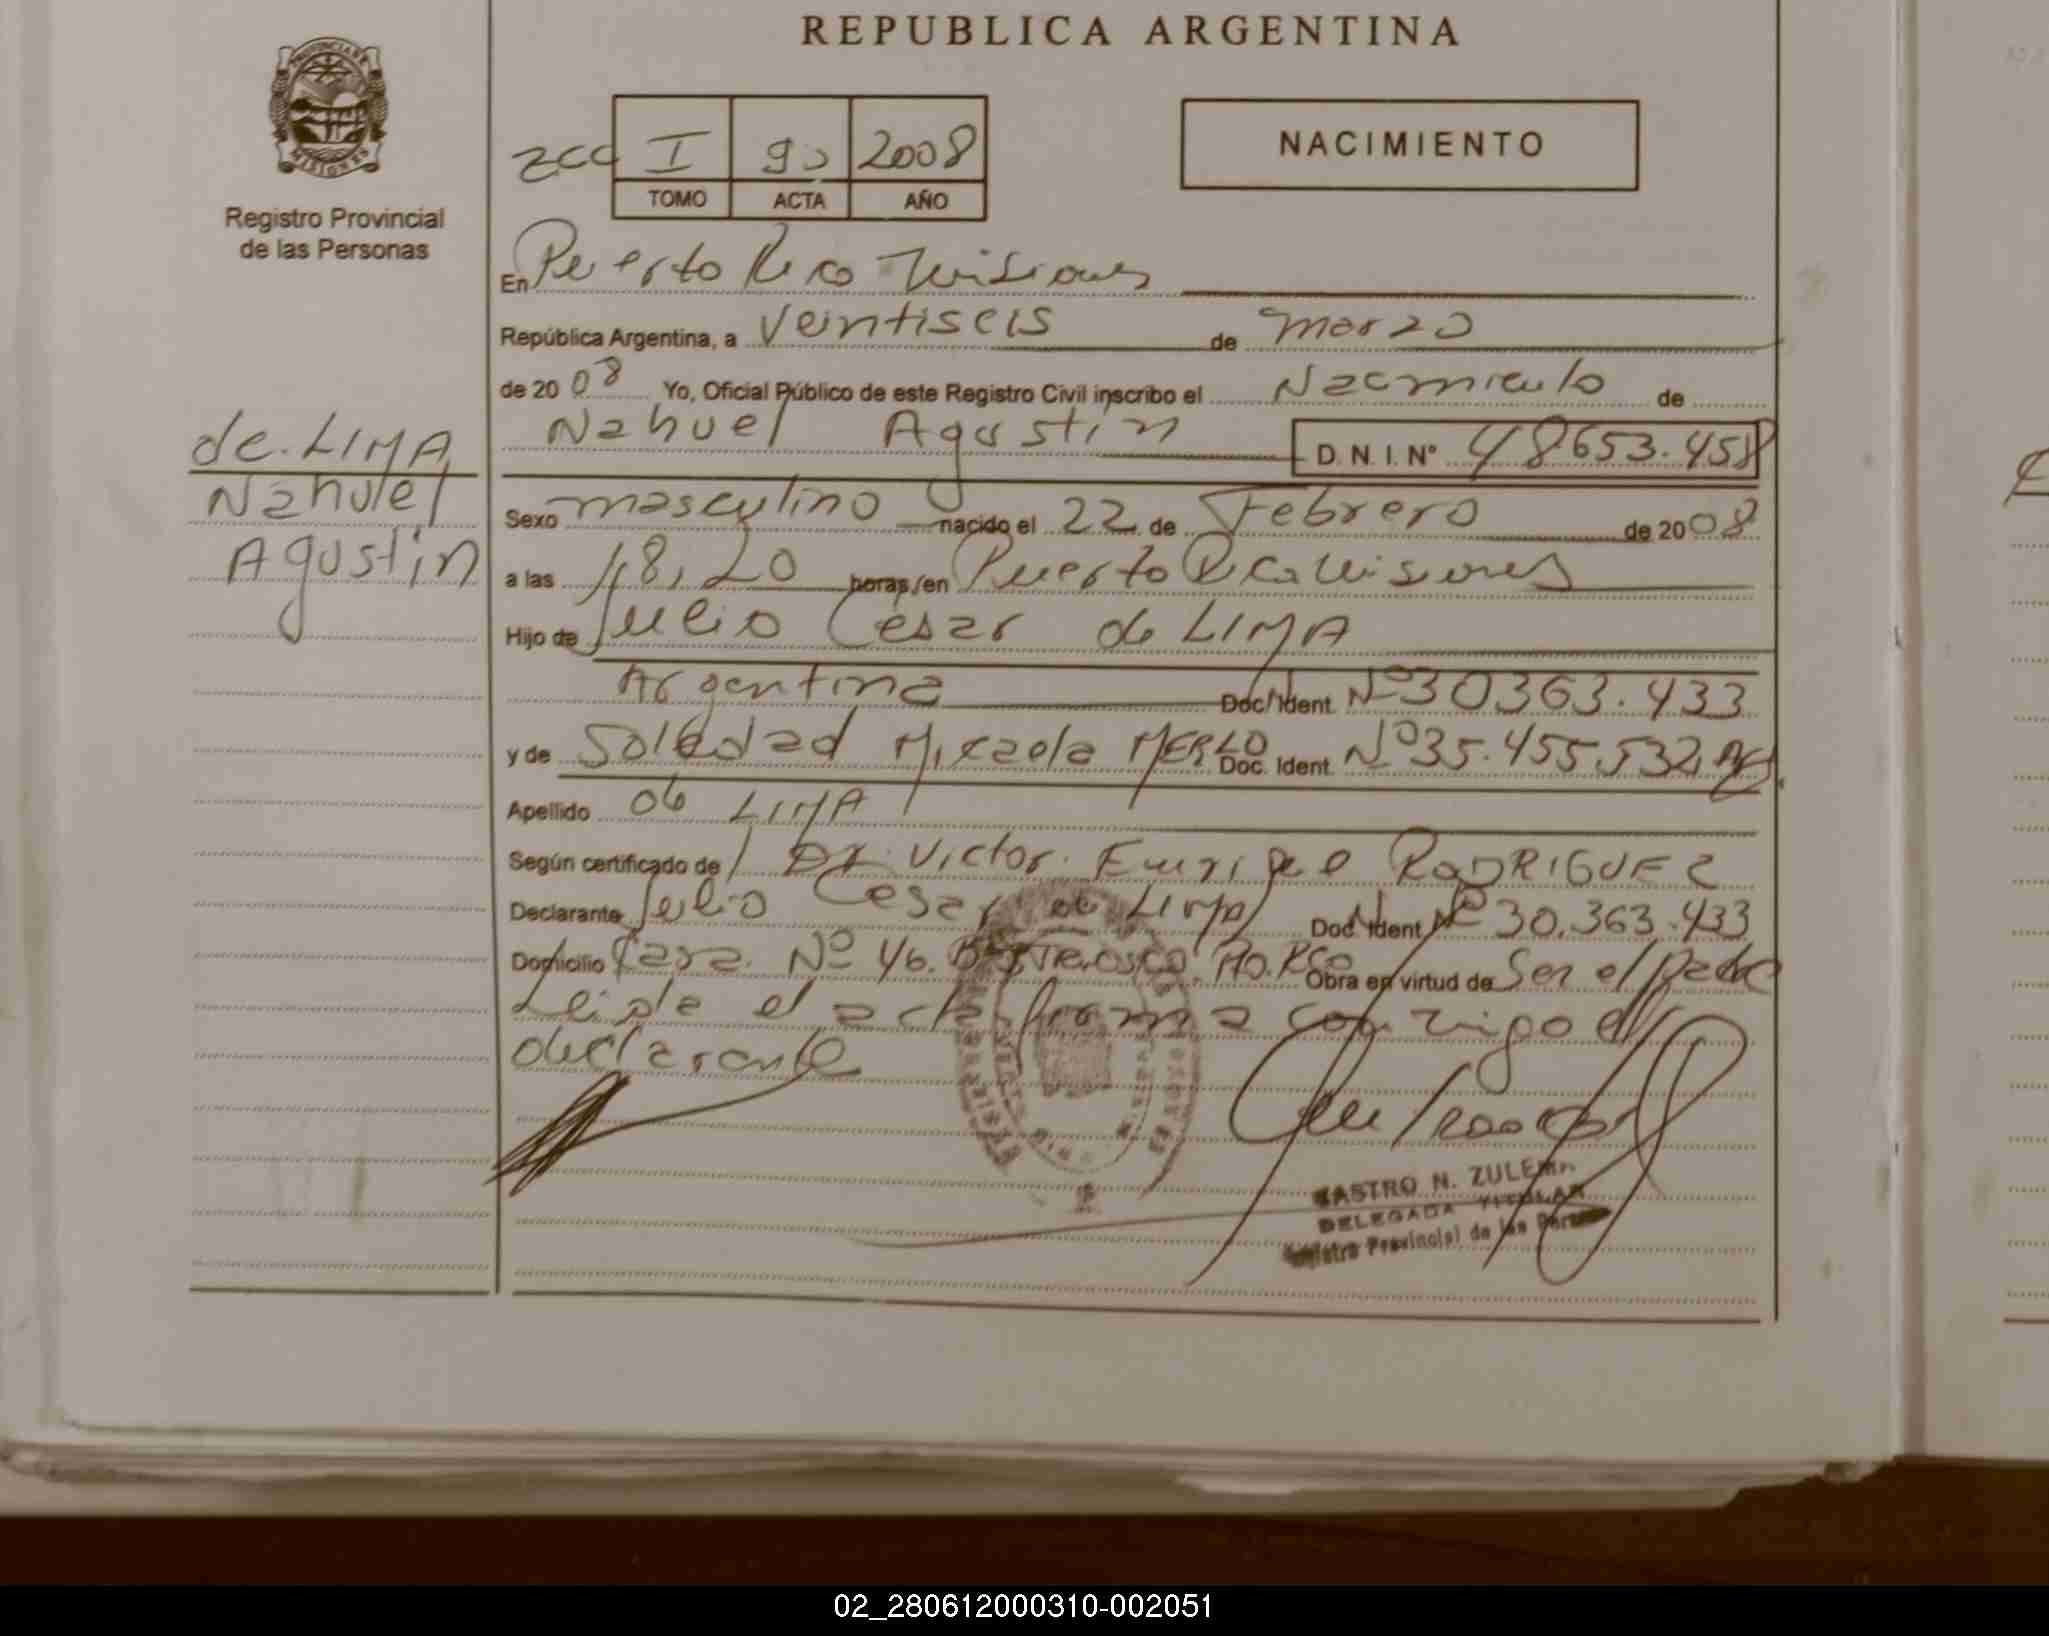 REPUBLICA ARGENTINA
PROVINCIA DE MISIONES
Registro Provincial
de las Personas
I 90 2008
TOMO ACTA AÑO
NACIMIENTO
En Puerto Rico Misiones
República Argentina, a Veintiseis de marzo
de 2008 Yo, Oficial Público de este Registro Civil inscribo el Nacimiento de
Nahuel Agustin D. N. I. Nº 48653.458
de LIMA
Nahuel
Agustin
Sexo masculino nacido el 22 de Febrero de 2008
a las 18,20 horas, en Puerto Rico Misiones
Hijo de Julio Cesar de LIMA
Argentina Doc. Ident. Nº 30363.433
y de Soledad Micaela MERLO Doc. Ident. Nº 35.455.532
Apellido de LIMA
Según certificado de Dr. Victor Enrique RODRIGUEZ
Declarante Julio Cesar de LIMA Doc. Ident. Nº 30.363.433
Domicilio Casa Nº 46. Obra en virtud de Ser el padre
Leida el acta firma conmigo el
declarante
CASTRO N. ZULEMA
DELEGADA TITULAR
Registro Provincial de las Personas
02_280612000310-002051